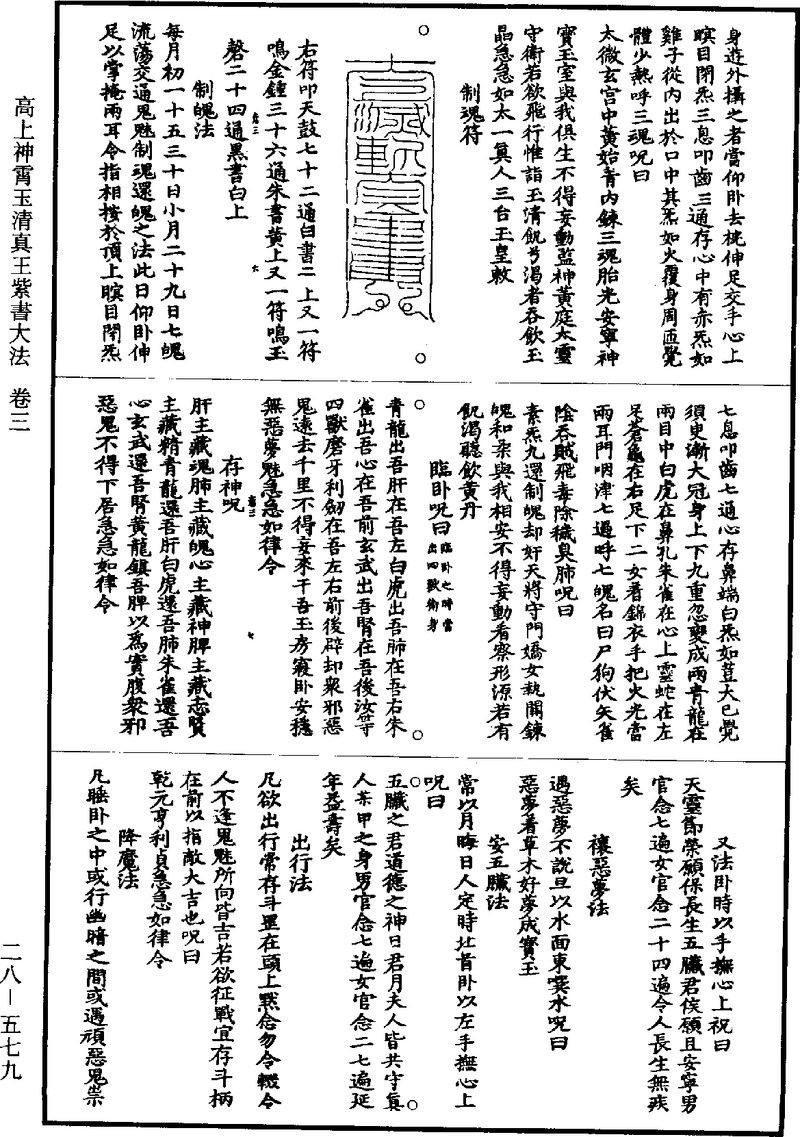 高上神霄玉清真王紫書大法　卷三
二八—五七九
身遊外攝之者當仰卧去枕伸足交手心上
瞑目閉炁三息叩齒三通存心中有赤炁如
雞子從內出於口中其炁如火覆身周匝覺
體少熱呼三魂呪曰
太微玄宮中黃始青內鍊三魂胎光安寧神
寶玉室與我俱生不得妄動監神黃庭太靈
守衛若欲飛行惟詣玉清飢兮渴者吞飲玉
晶急急如太一真人三台玉皇敕
制魂符
右符叩天鼓七十二通白書二上又一符
鳴金鍾三十六通朱書黃上又一符鳴玉
磬二十四通黑書白上
制魄法
每月初一十五三十日小月二十九日七魄
流蕩交通鬼魅制魂還魄之法此日仰卧伸
足以掌掩兩耳令指相接於頂上瞑目閉炁
七息叩齒七通心存鼻端白炁如荳大已覺
須臾漸大冠身上下九重忽變成兩青龍在
兩目中白虎在鼻孔朱雀在心上靈蛇在左
足蒼龜在右足下二女着錦衣手把火光當
兩耳門咽津七過呼七魄名曰尸狗伏矢雀
陰吞賊飛毒除穢臭肺呪曰
素炁九還制魄却奸天將守門嬌女執關鍊
魄和柔與我相安不得妄動看察形源若有
飢渴聽飲黃丹
臨卧呪曰臨卧之時當出四獸衛身
青龍出吾肝在吾左白虎出吾肺在吾右朱
雀出吾心在吾前玄武出吾腎在吾後汝等
四獸磨牙利劒在吾左右前後辟却衆邪惡
鬼遠去千里不得妄來干吾玉房寢卧安穩
無惡夢魅急急如律令
存神呪
肝主藏魂肺主藏魄心主藏神脾主藏志腎
主藏精青龍還吾肝白虎還吾肺朱雀還吾
心玄武還吾腎黃龍鎮吾脾以爲實腹衆邪
惡鬼不得下居急急如律令
又法卧時以手撫心上祝曰
天靈節榮願保長生五臟君侯願且安寧男
官念七遍女官念二十四遍令人長生無疾
矣
禳惡夢法
遇惡夢不說旦以水面東噀水呪曰
惡夢着草木好夢成寶玉
安五臟法
常以月晦日人定時北首卧以左手撫心上
呪曰
五臟之君道德之神日君月夫人皆共守真
人某甲之身男官念七遍女官念二七遍延
年益壽矣
出行法
凡欲出行常存斗罡在頭上默念勿令輟令
人不逢鬼魅所向皆吉若欲征戰宜存斗柄
在前以指敵大吉也呪曰
乾元亨利貞急急如律令
降魔法
凡睡卧之中或行幽暗之間或遇頑惡鬼祟